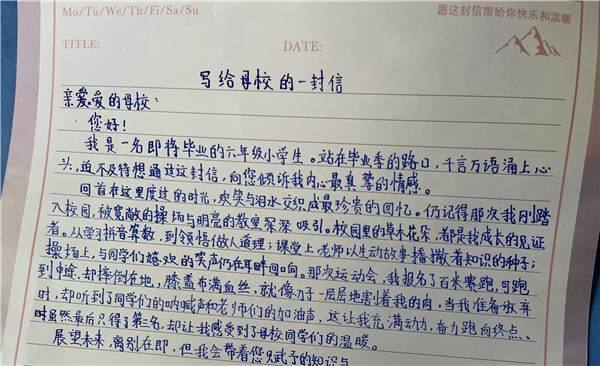 Mo/Tu/We/Th/Fi/Sa/Su
愿这封信带给你快乐和温暖
TITLE:
DATE:
写给母校的一封信
亲爱爱的母校：
您好！
我是一名即将毕业的六年级小学生。站在毕业季的路口，千言万语涌上心
头，迫不及待想通过这封信，向您倾诉我内心最真挚的情感。
回首在这里度过的时光，欢笑与泪水交织成最珍贵的回忆。仍记得那次我刚踏
入校园，被宽敞的操场与明亮的教室深深吸引。校园里的草木花朵，都是我成长的见证
者。从学习拼音算数，到领悟做人道理；课堂上老师以生动故事播撒着知识的种子；
操场上，与同学们嬉欢的笑声仍在耳畔回响。那次运动会，我报名了百米赛跑，可跑
到中途，却摔倒在地，膝盖布满血丝，就像刀子一层层地割着我的肉，当我准备放弃
时，却听到了同学们的呐喊声和老师们的加油声，这让我充满动力，奋力跑向终点、
虽然最后只得了第名，却让我感受到了母校同学们的温暖。
展望未来，离别在即，但我会带着您赋予的知识与